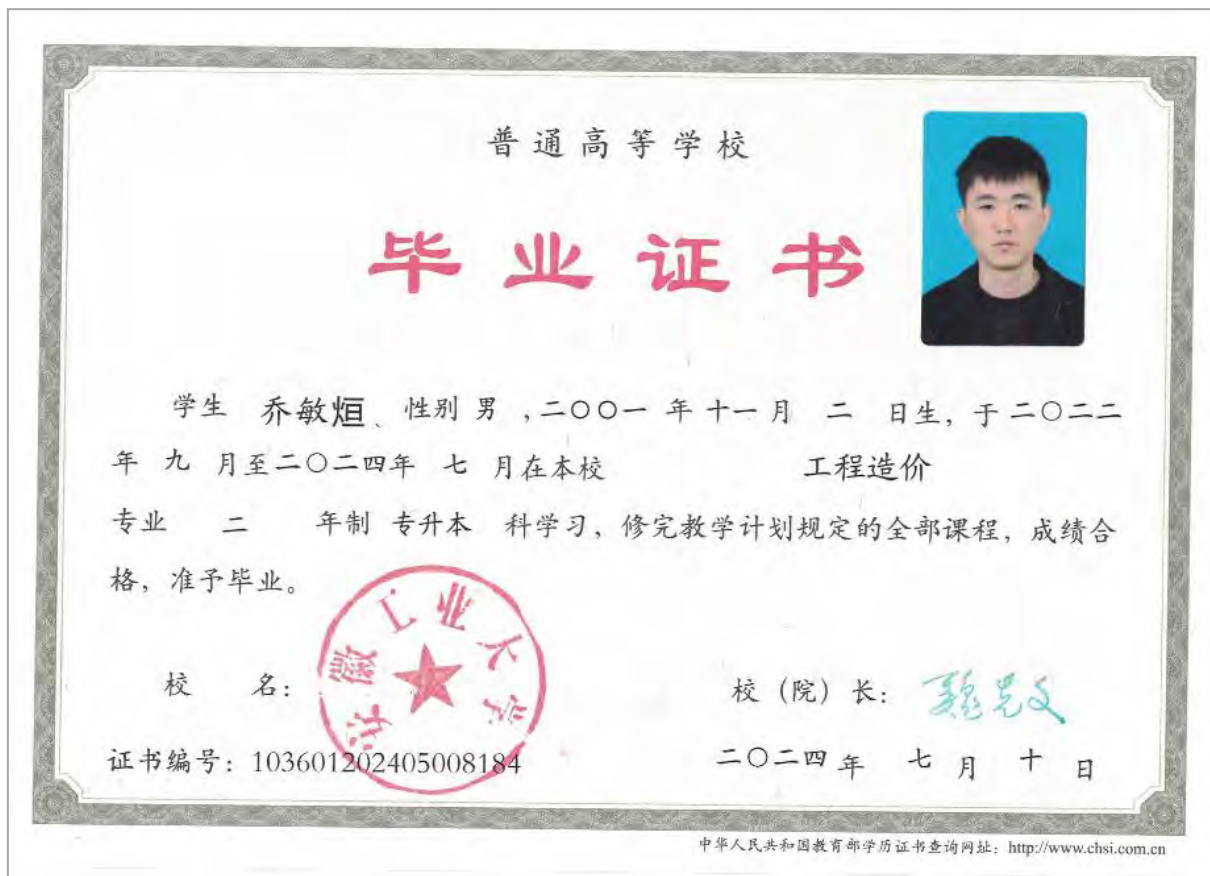 普通高等学校
毕业证书
学生 乔敏烜、性别 男 ,二〇〇一 年 十一 月 二 日生, 于 二〇二二
年 九 月至二〇二四年 七 月在本校 工程造价
专业 二 年制 专升本 科学习, 修完教学计划规定的全部课程, 成绩合
格, 准予毕业。
安徽工业大学
校 名: 校 (院) 长: 魏先文
证书编号: 103601202405008184 二〇二四 年 七 月 十 日
中华人民共和国教育部学历证书查询网址: http://www.chsi.com.cn